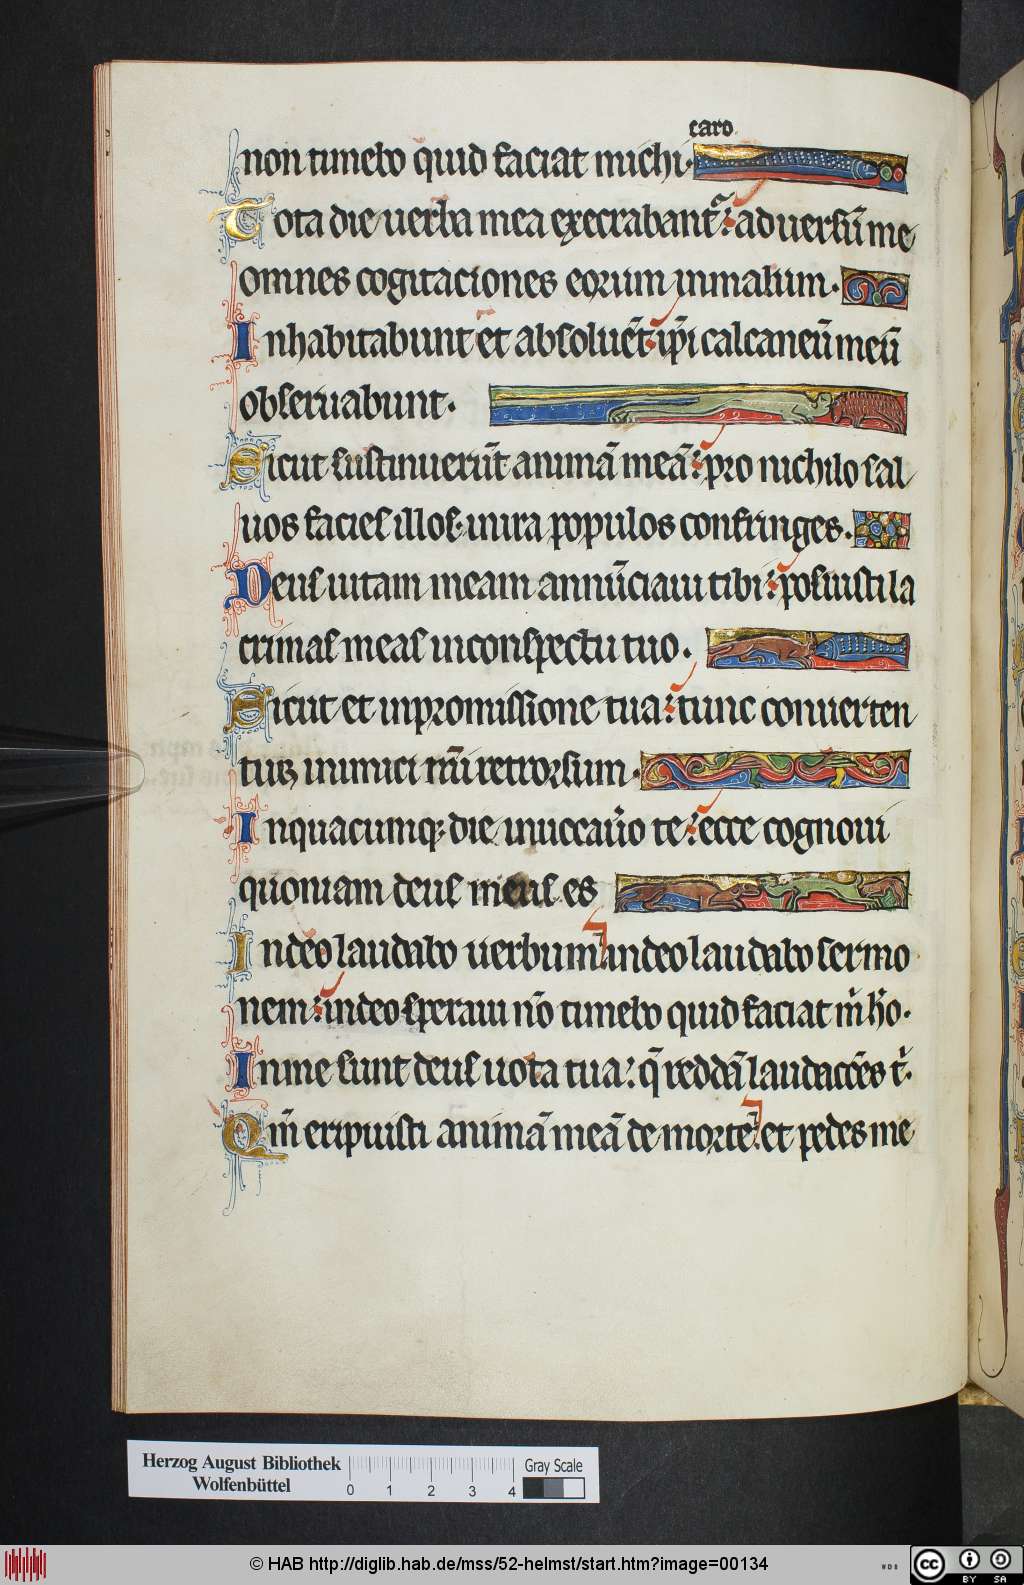 caro
non timebo quid faciat michi·
Tota die uerba mea execrabant᷑: aduersū me
omnes cogitaciones eorum inmalum·
Inhabitabunt et absoluēt: ip̄i calcaneū meū
obseruabunt·
Sicut sustinuerūt animā meā: pro nichilo sal
uos facies illos: inira populos confringes·
Deus uitam meam annūciaui tibi: posuisti la
crimas meas inconspectu tuo·
Sicut et inpromissione tua: tunc conuerten
tur inimici mĩ retrorsum·
Inquacumq; die inuocau᷑o te: ecce cognoui
quoniam deus meus es
Indeo laudabo uerbum indeo laudabo sermo
nem: indeo speraui nō timebo quid faciat m̄ hō·
Inme sunt deus uota tua: q̄ reddā laudacōēs t᷑·
Qm̄ eripuisti animā meā de morte: et pedes me
Herzog August Bibliothek
Wolfenbüttel
0 1 2 3 4
Gray Scale
© HAB http://diglib.hab.de/mss/52-helmst/start.htm?image=00134
cc BY SA